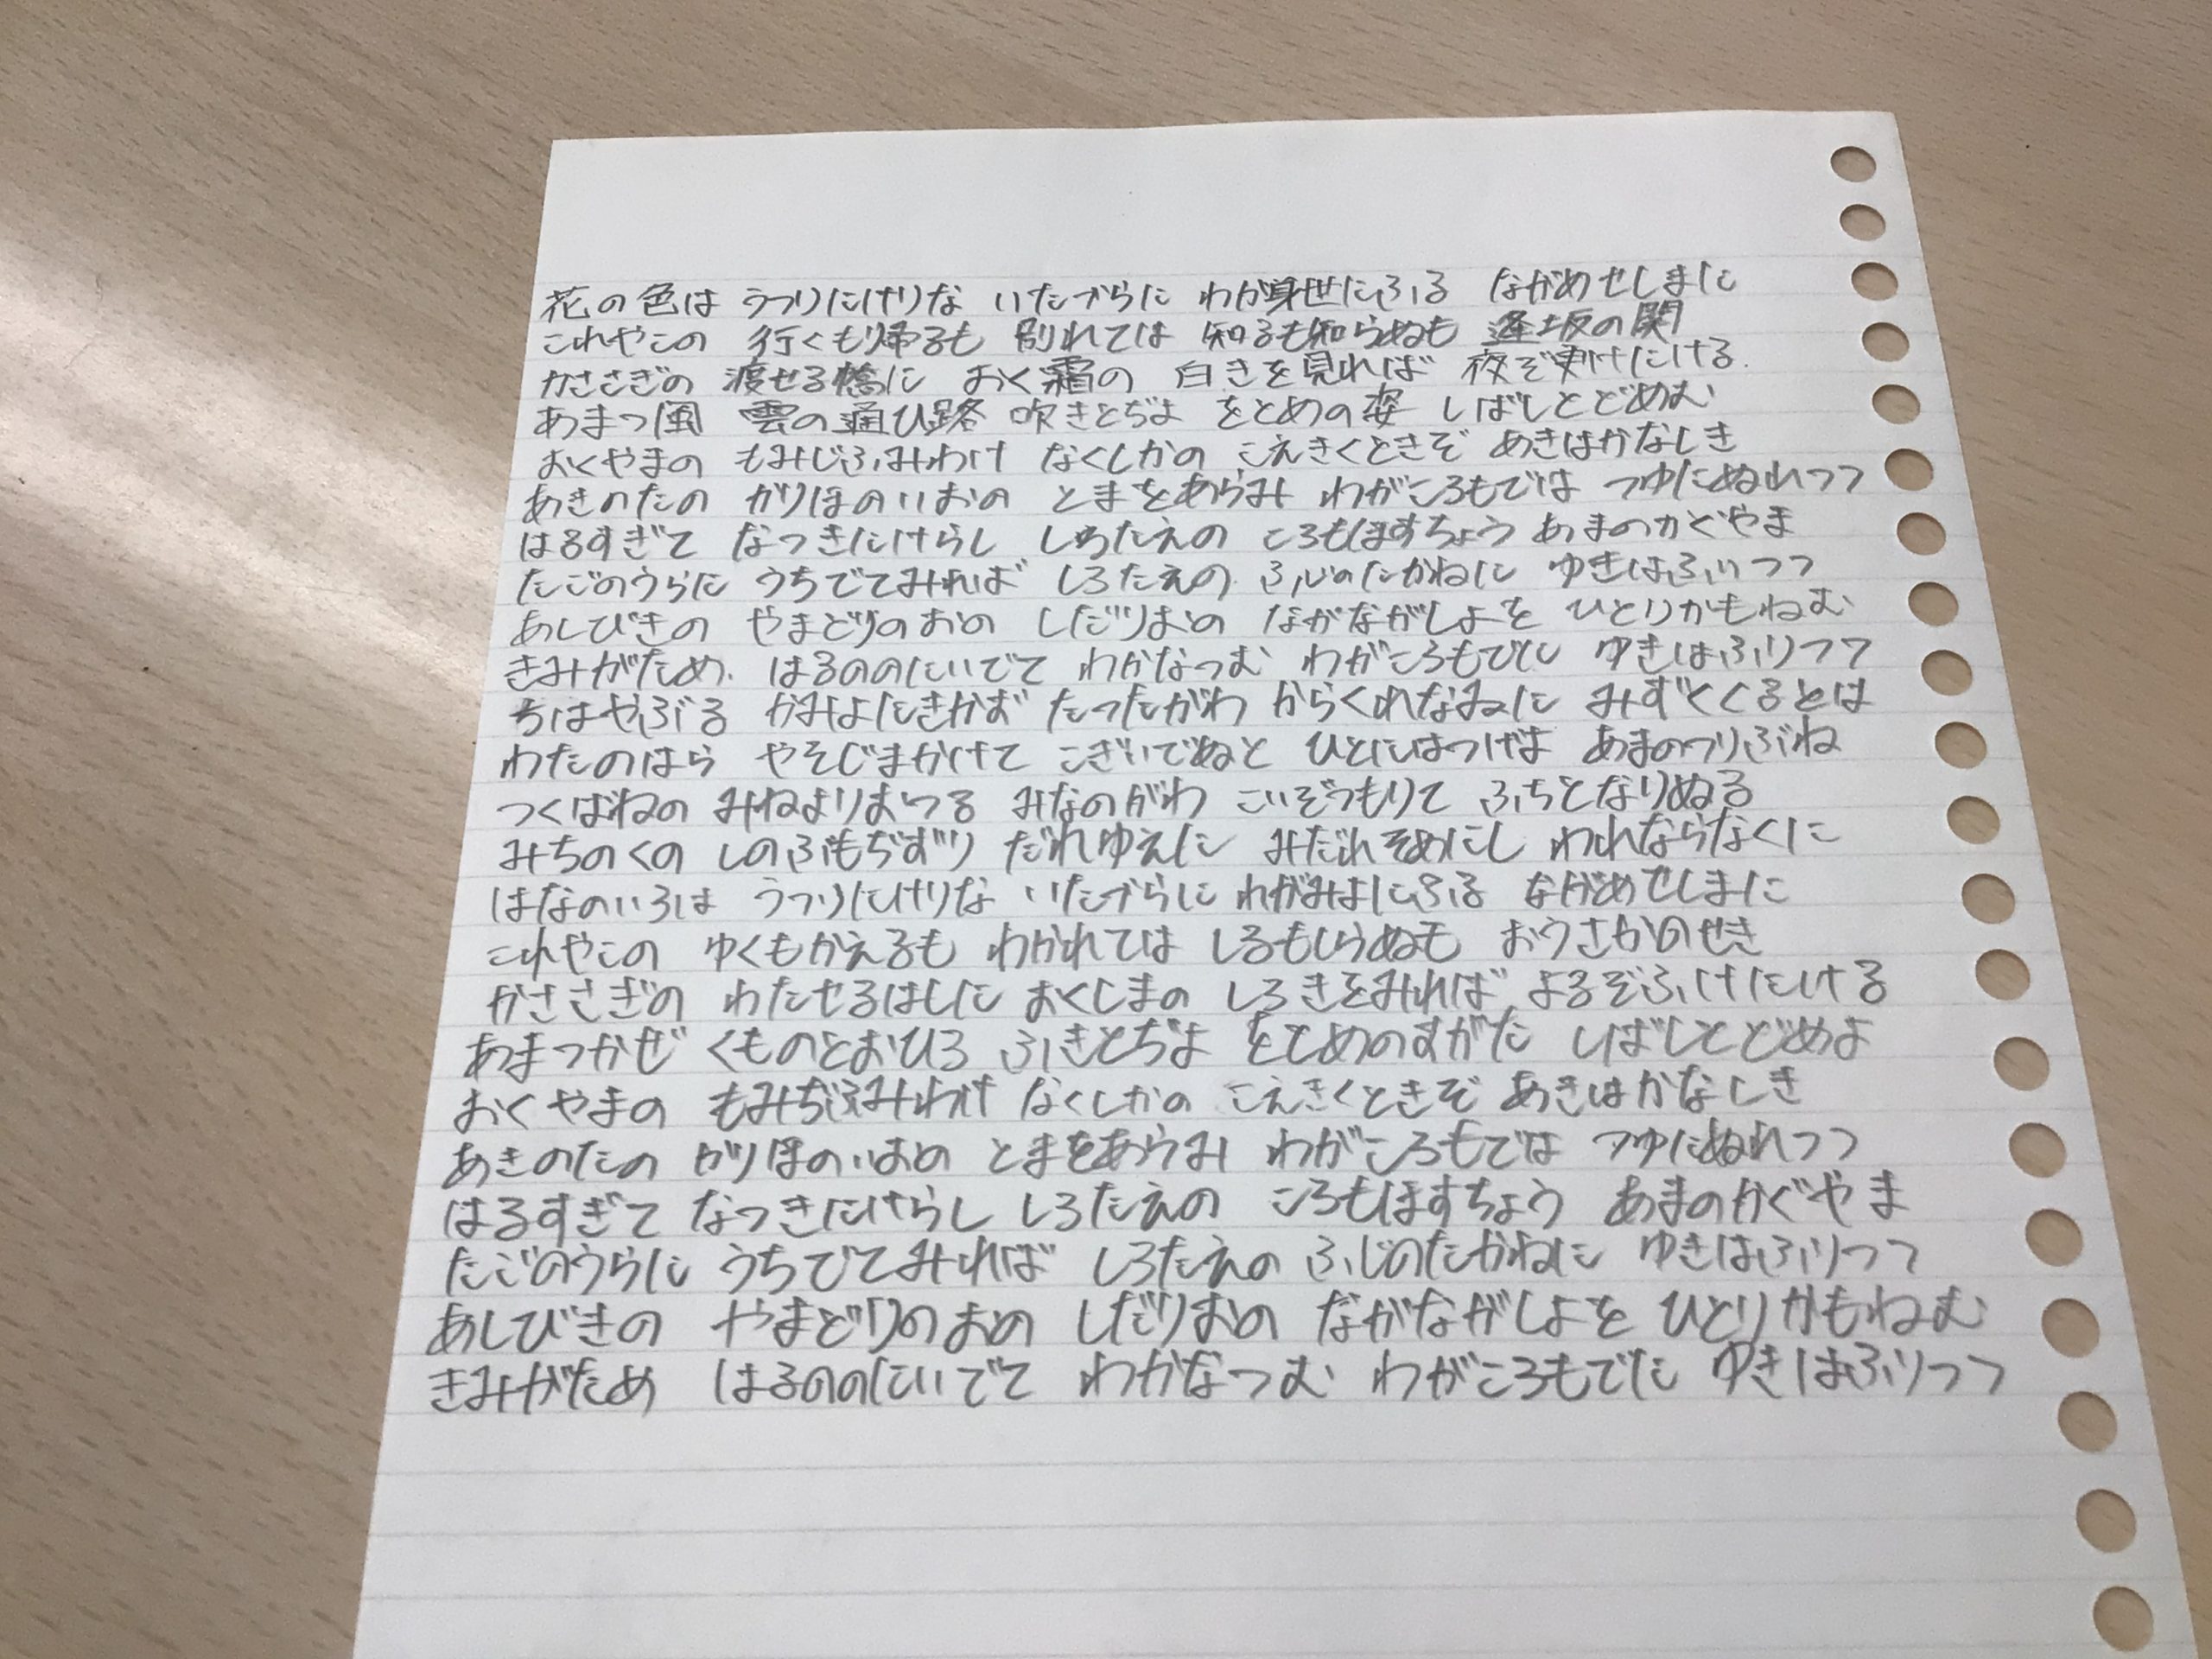 花の色は うつりにけりな いたづらに わが身世にふる ながめせしまに
これやこの 行くも帰るも 別れては 知るも知らぬも 逢坂の関
かささぎの 渡せる橋に おく霜の 白きを見れば 夜ぞ更けにける
あまつ風 雲の通ひ路 吹きとぢよ をとめの姿 しばしとどめむ
おくやまの もみじふみわけ なくしかの こえきくときぞ あきはかなしき
あきのたの かりほのいおの とまをあらみ わがころもでは つゆにぬれつつ
はるすぎて なつきにけらし しろたえの ころもほすちょう あまのかぐやま
たごのうらに うちでてみれば しろたえの ふじのたかねに ゆきはふりつつ
あしびきの やまどりのおの しだりおの ながながしよを ひとりかもねむ
きみがため はるののにいでて わかなつむ わがころもでに ゆきはふりつつ
ちはやぶる かみよにきかず たつたがわ からくれなゐに みずくくるとは
わたのはら やそじまかけて こぎいでぬと ひとにはつげよ あまのつりぶね
つくばねの みねよりおつる みなのがわ こいぞつもりて ふちとなりぬる
みちのくの しのぶもぢずり だれゆえに みだれそめにし われならなくに
はなのいろは うつりにけりな いたづらに わがみよにふる ながめせしまに
これやこの ゆくもかえるも わかれては しるもしらぬも おうさかのせき
かささぎの わたせるはしに おくしもの しろきをみれば よるぞふけにける
あまつかぜ くものとおひろ ふきとぢよ をとめのすがた しばしとどめよ
おくやまの もみぢふみわけ なくしかの こえきくときぞ あきはかなしき
あきのたの かりほのいおの とまをあらみ わがころもでは つゆにぬれつつ
はるすぎて なつきにけらし しろたえの ころもほすちょう あまのかぐやま
たごのうらに うちでてみれば しろたえの ふじのたかねに ゆきはふりつつ
あしびきの やまどりのおの しだりおの ながながしよを ひとりかもねむ
きみがため はるののにいでて わかなつむ わがころもでに ゆきはふりつつ